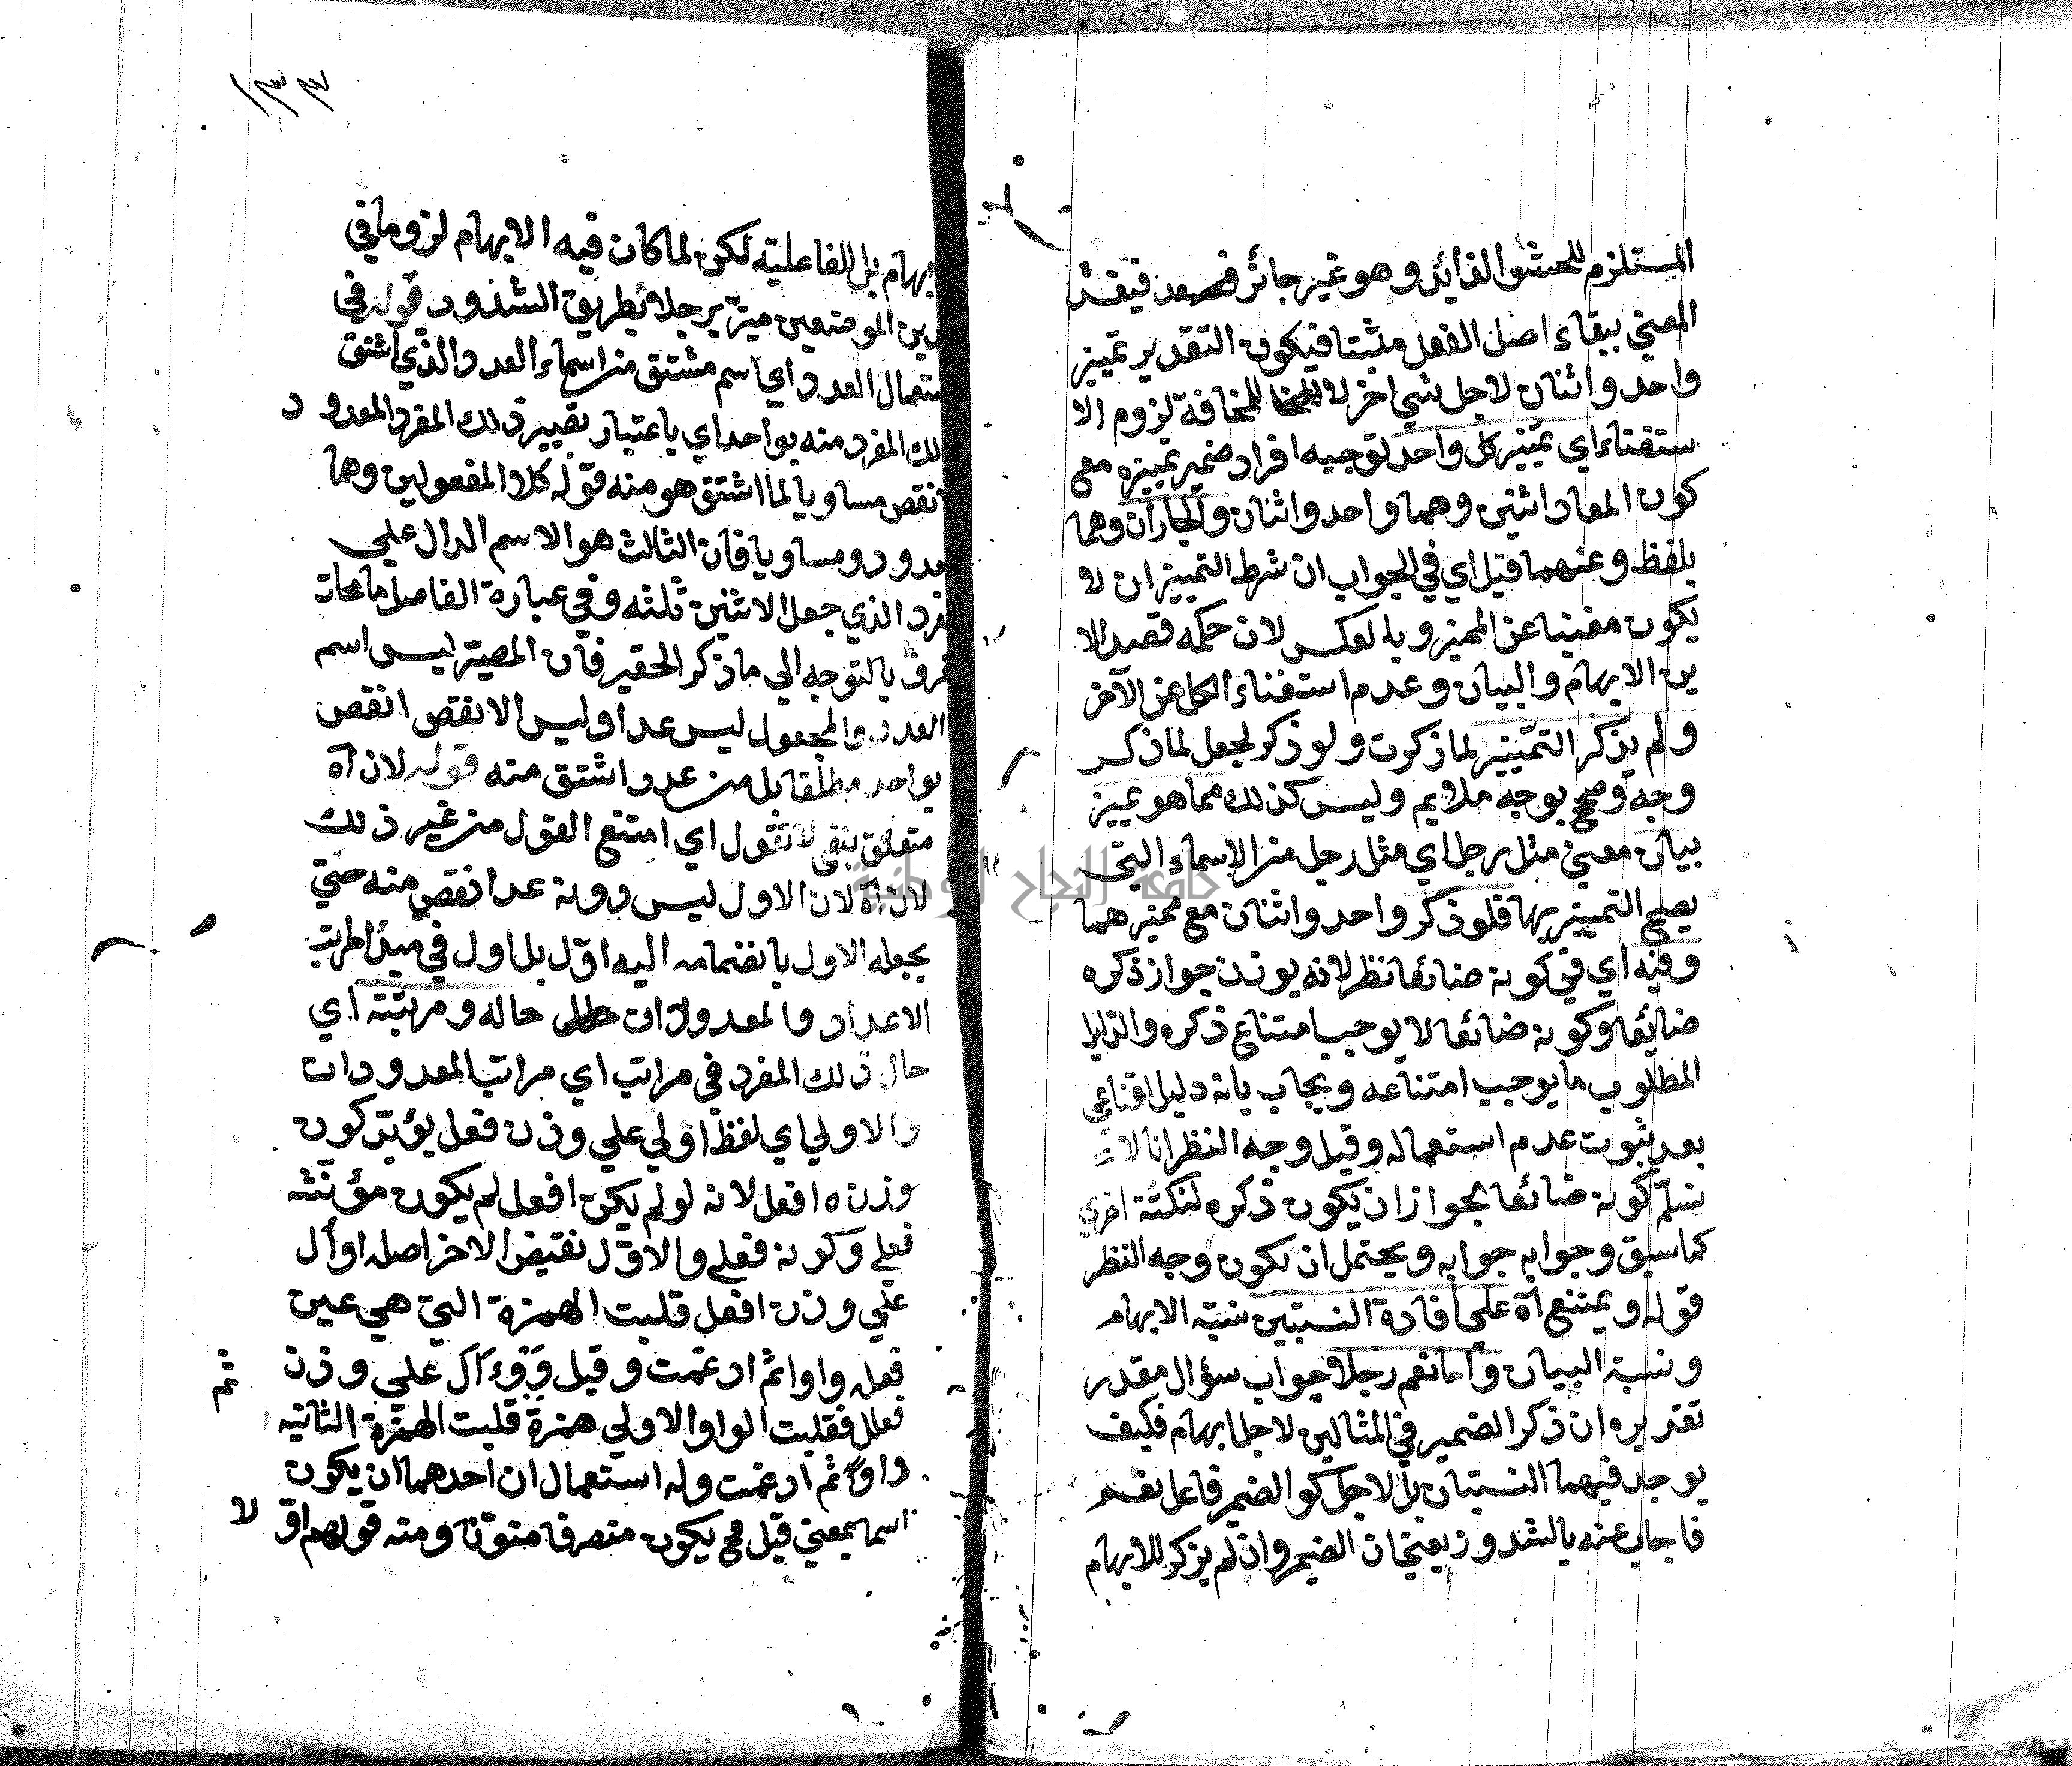 المستلزم للحشو الزائد وهو غير جائز فيفسد
المعني ببقاء اصل الفعل مثبتا فيكون التقدير تمييز
واحد واثنان لاجل شي اخر لا للمخافة لزوم الا
ستغناء اي تمييز كل واحد لتوجيه افراد ضمير تمييزه مع
كون المعاد اثنين وهما واحد واثنان والجاران وهما
بلفظ وعنهما قيل اي في الجواب ان شرط التمييز ان لا
يكون مغنيا عن المميز وبالعكس لان حكمه قصد الا
ين الابهام والبيان وعدم استغناء الكل عن الآخر
ولم يذكر التمييز لما ذكرت ولو ذكر لجعل لما ذكر
وجه وصح بوجه ملايم وليس كذلك مما هو تمييز
بيان معين مثل رجل اي مثل رجل من الاسماء التي
يصح التمييز بها فلو ذكر واحد واثنان مع مميزهما
وفيه اي في كونه ضائعا نظر لانه يوذن جواز ذكره
ضايعا وكونه ضائعا لا يوجب امتناع ذكره والدليل
المطلوب ما يوجب امتناعه ويجاب بانه دليل اقناعي
بعد ثبوت عدم استعماله وقيل وجه النظر انا لا
نسلم كونه ضائعا لجواز ان يكون ذكره لنكتة اخري
كما سبق وجوابه جوابه ويحتمل ان يكون وجه النظر
قوله ويمتنع آه علي افادة النسبتين نسبة الابهام
ونسبة البيان واما نعم رجلا جواب سؤال مقدر
تقديره ان ذكر الضمير في المثالين لاجل ابهام فكيف
يوجد فيهما النسبتان بل لاجل كو الضمير فاعل نعم
فاجاب عنه بالشذوذ يعني ان الضمير وان لم يذكر للابهام
بهام بل للفاعلية لكن لما كان فيه الابهام لزوما في
ذين الموضعين ميز برجلا بطريق الشذوذ قوله في
ستعمال العدد اي اسم مشتق من اسماء العدد والذي اشتق
لك المفرد منه بواحد اي باعتبار تغيير ذلك المفرد المعدود
انقص مساويا لما اشتق هو منه قوله كلا المفعولين وهما
عدود ومساويا فان الثالث هو الاسم الدال علي
مفرد الذي جعل الاثنين ثلثه وفي عبارة الفاضل مامحات
تعرف بالتوجه الي ما ذكر الحقير فان المصير ليس اسم
العدد والمجعول ليس عدا وليس الانقص انقص
بواحد مطلقا بل من عدد اشتق منه قوله لان آه
متعلق بنفي لا نقول اي امتنع القول من غير ذلك
لان آه لان الاول ليس دونه عدا نقص منه حتي
يجعله الاول بانضمامه اليه اول بل اول في مبدأ المراتب
الاعداد والمعدودات حاله ومرتبته اي
حال ذلك المفرد في مراتب اي مراتب المعدودات
والاولي اي لفظ اولي علي وزن فعل يؤيد كون
وزنه افعل لانه لو لم يكن افعل لم يكون مؤنثه
فعلي وكونه فعلي والاول نقيض الاخر اصله اوأل
علي وزن افعل قلبت الهمزة التي هي عين
فعله واوا ثم ادغمت وقيل ووءال علي وزن
فعلل فقلبت الواو الاولي همزة قلبت الهمزة الثانيه
واوا ثم ادغمت وله استعمالان احدهما ان يكون
اسما بمعني قبل فح يكون منصرفا منونا ومنه قولهم اق لا